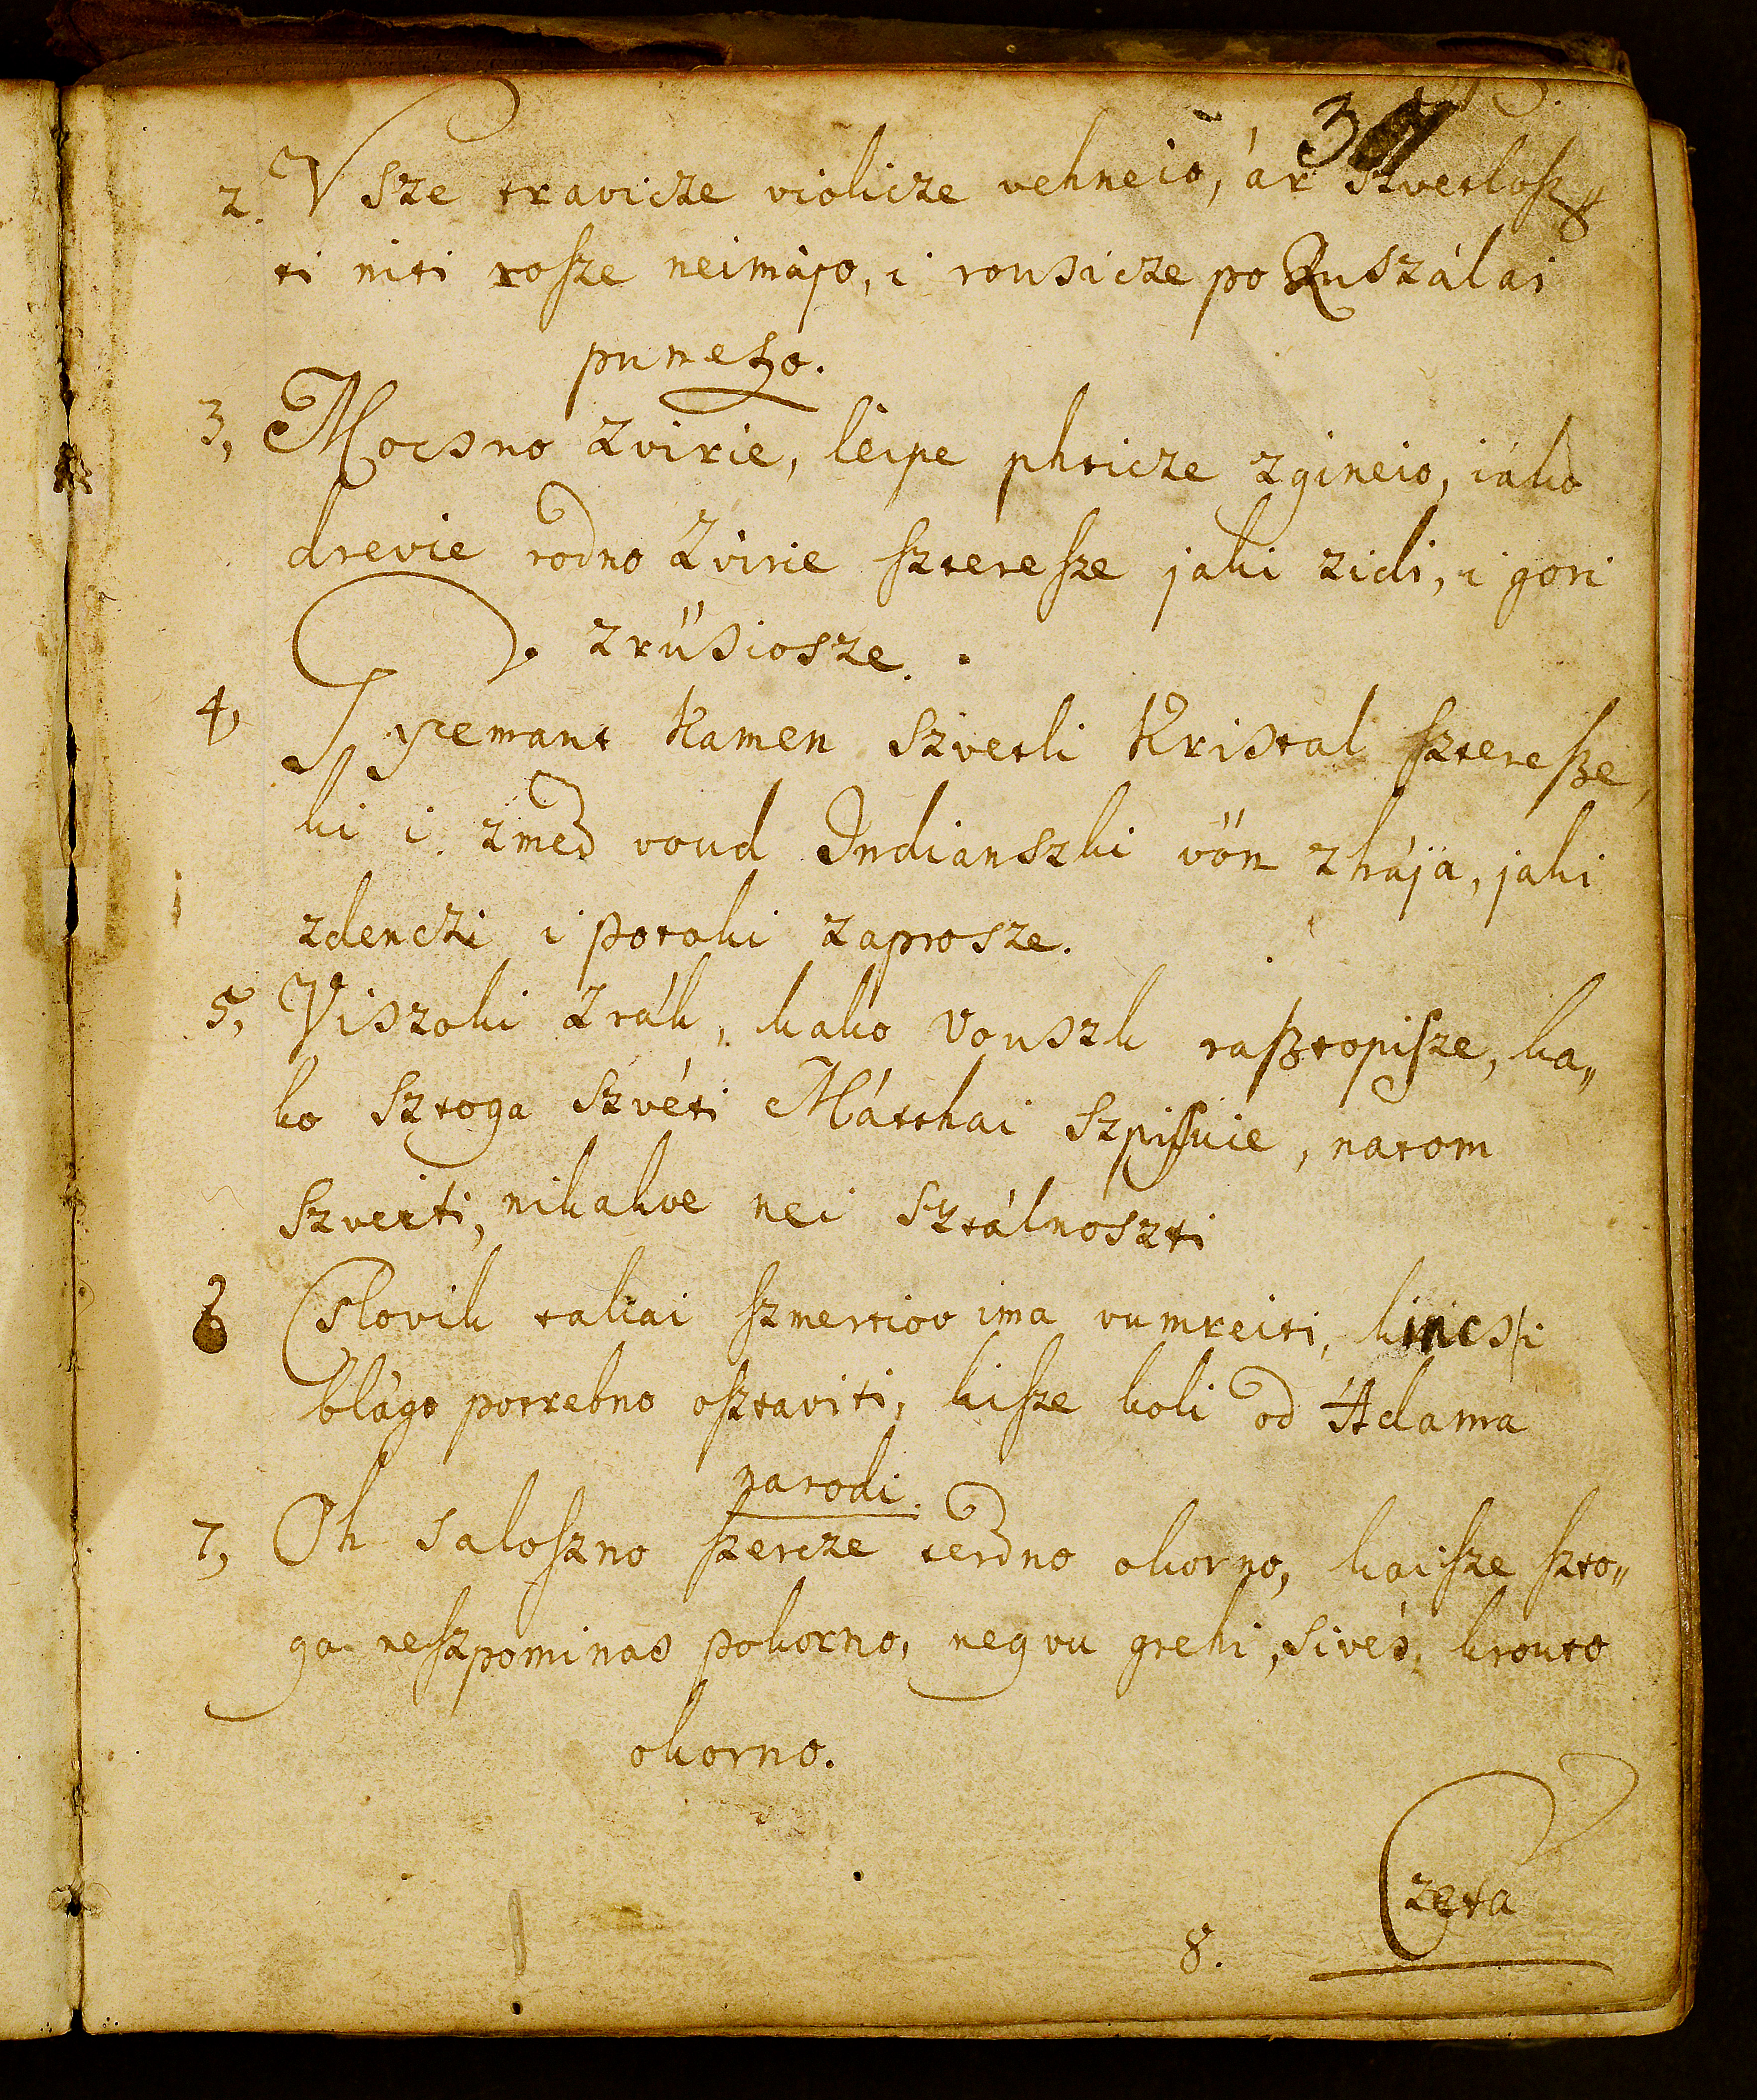 2. Vsze travicze violicze vehneio, ár szvetlosz
ti niti rosze neimájo, i rousicze po Ruszálai
pumetjo.
3, Mocsno Zvirie, leipe phticze zgineio, iáko
drevie rodno Zvirie sztere sze jaki zidi, i gori
zrűsiosze.
4, I yemant Kamen szvetli Kristal szteresze,
ki i zmed voud Indianszki vőn zhája, jaki
zdenczi i potoki zaprosze.
5, Viszoki Zrák, kako Vouszk rasztopisze, ka„
ko sztoga szvéti Mátthai szpiszuie, natom
szveiti, nikakve nei sztálnoszti
6 Cslovik takai szmertiov ima vumreiti, kincs i
blágo potrebno osztaviti, kisze koli od Ádama
narodi.
7, Oh saloszno szercze terdno okorno, kaisze szto„
ga neszpominas pokorno, neg vu grehi, sivés, krouto
okorno.
8. Czeta